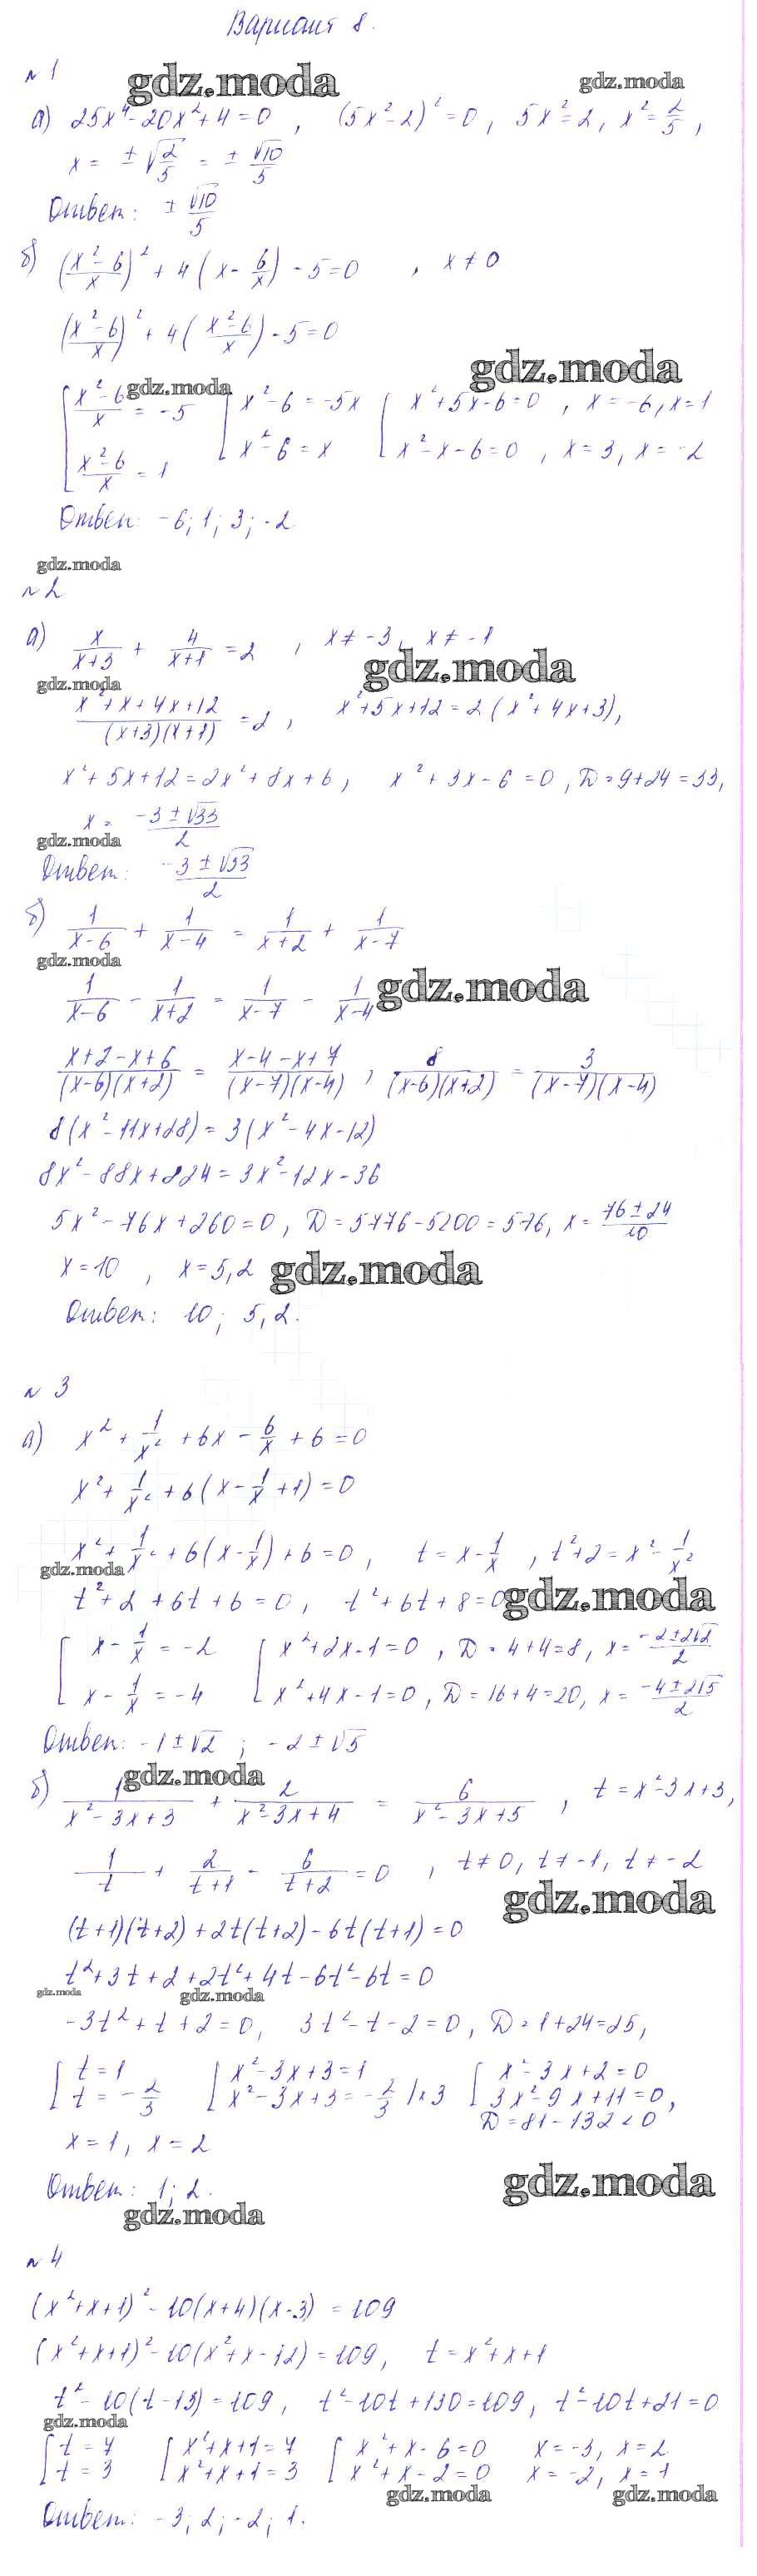 Вариант 8.
№ 1
gdz.moda gdz.moda
а) 25x⁴-20x²+4=0, (5x²-2)²=0, 5x²=2, x²=2/5,
x = ±√(2/5) = ±√10/5
Ответ: ±√10/5
б) ((x²-6)/x)² + 4(x - 6/x) - 5=0, x≠0
((x²-6)/x)² + 4((x²-6)/x) - 5=0
gdz.moda
gdz.moda
[(x²-6)/x = -5 [x²-6 = -5x [x²+5x-6=0, x=-6, x=1
(x²-6)/x = 1 x²-6 = x x²-x-6=0, x=3, x=-2
Ответ: -6; 1; 3; -2
gdz.moda
№ 2
а) x/(x+3) + 4/(x+1) = 2, x≠-3, x≠-1
gdz.moda
gdz.moda
(x²+x+4x+12)/((x+3)(x+1)) = 2, x²+5x+12=2(x²+4x+3),
x²+5x+12=2x²+8x+6, x²+3x-6=0, D=9+24=33,
x = (-3±√33)/2
gdz.moda
Ответ: (-3±√33)/2
б) 1/(x-6) + 1/(x-4) = 1/(x+2) + 1/(x-7)
gdz.moda
1/(x-6) - 1/(x+2) = 1/(x-7) - 1/(x-4)
gdz.moda
(x+2-x+6)/((x-6)(x+2)) = (x-4-x+7)/((x-7)(x-4)), 8/((x-6)(x+2)) = 3/((x-7)(x-4))
8(x²-11x+28)=3(x²-4x-12)
8x²-88x+224=3x²-12x-36
5x²-76x+260=0, D=5776-5200=576, x=(76±24)/10
x=10, x=5,2
gdz.moda
Ответ: 10; 5,2.
№ 3
а) x² + 1/x² + 6x - 6/x + 6=0
x² + 1/x² + 6(x - 1/x + 1)=0
x² + 1/x² + 6(x - 1/x) + 6=0, t=x-1/x, t²+2=x²-1/x²
gdz.moda
t²+2+6t+6=0, t²+6t+8=0
gdz.moda
[x - 1/x = -2 [x²+2x-1=0, D=4+4=8, x=(-2±2√2)/2
x - 1/x = -4 x²+4x-1=0, D=16+4=20, x=(-4±2√5)/2
Ответ: -1±√2; -2±√5
gdz.moda
б) 1/(x²-3x+3) + 2/(x²-3x+4) = 6/(x²-3x+5), t=x²-3x+3,
1/t + 2/(t+1) - 6/(t+2) = 0, t≠0, t≠-1, t≠-2
gdz.moda
(t+1)(t+2)+2t(t+2)-6t(t+1)=0
t²+3t+2+2t²+4t-6t²-6t=0
gdz.moda gdz.moda
-3t²+t+2=0, 3t²-t-2=0, D=1+24=25,
[t=1 [x²-3x+3=1 [x²-3x+2=0
t=-2/3 x²-3x+3=-2/3 |×3 3x²-9x+11=0,
D=81-132<0
x=1, x=2
Ответ: 1; 2.
gdz.moda
gdz.moda
№ 4
(x²+x+1)²-10(x+4)(x-3)=109
(x²+x+1)²-10(x²+x-12)=109, t=x²+x+1
t²-10(t-13)=109, t²-10t+130=109, t²-10t+21=0
gdz.moda
[t=7 [x²+x+1=7 [x²+x-6=0 x=-3, x=2
t=3 x²+x+1=3 x²+x-2=0 x=-2, x=1
gdz.moda gdz.moda
Ответ: -3; 2; -2; 1.